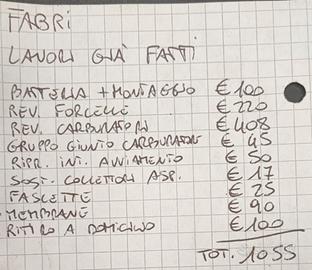 FABRI
LAVORI GIÀ FATTI
BATTERIA + MONTAGGIO € 100
REV. FORCELLE € 220
REV. CARBURATORI € 408
GRUPPO GIUNTO CARBURATORE € 45
RIPR. INT. AVVIAMENTO € 50
SOST. COLLETTORI ASP. € 17
FASCETTE € 25
MEMBRANE € 90
RITIRO A DOMICILIO € 100
TOT. 1055